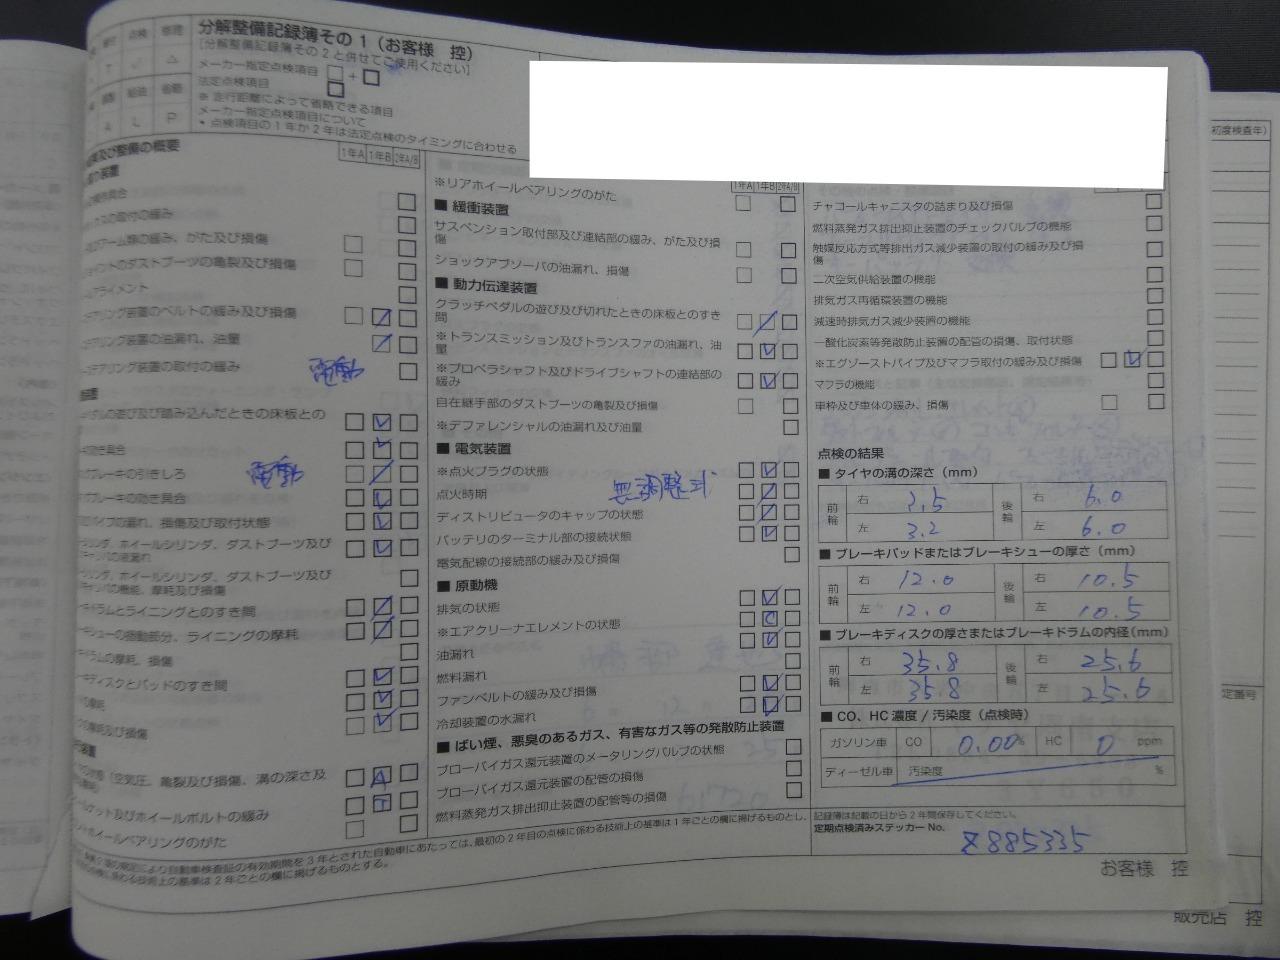 分解整備記録簿その1（お客様 控）
［分解整備記録簿その2と併せてご使用ください］
メーカー指定点検項目 □+□
法定点検項目 □
※走行距離によって省略できる項目
メーカー指定点検項目について
•点検項目の1年か2年は法定点検のタイミングに合わせる
点検 修理
✓ △
給油 省略
A L P
及び整備の概要
1年A 1年B 2年A/B
の取付の緩み
アーム類の緩み、がた及び損傷
ョイントのダストブーツの亀裂及び損傷
アライメント
アリング装置のベルトの緩み及び損傷
アリング装置の油漏れ、油量
アリング装置の取付の緩み
電動
ダルの遊び及び踏み込んだときの床板との
き具合
ブレーキの引きしろ
電動
ブレーキの効き具合
パイプの漏れ、損傷及び取付状態
リンダ、ホイールシリンダ、ダストブーツ及び
リンダ、ホイールシリンダ、ダストブーツ及び
の機能、摩耗及び損傷
ドラムとライニングとのすき間
シューの摺動部分、ライニングの摩耗
ドラムの摩耗、損傷
ディスクとパッドのすき間
の摩耗
の摩耗及び損傷
の状態（空気圧、亀裂及び損傷、溝の深さ及
A
ナット及びホイールボルトの緩み
T
ントホイールベアリングのがた
※リアホイールベアリングのがた
1年A 1年B 2年A/B
■ 緩衝装置
サスペンション取付部及び連結部の緩み、がた及び損
傷
ショックアブソーバの油漏れ、損傷
■ 動力伝達装置
クラッチペダルの遊び及び切れたときの床板とのすき
間
※トランスミッション及びトランスファの油漏れ、油
量
※プロペラシャフト及びドライブシャフトの連結部の
緩み
自在継手部のダストブーツの亀裂及び損傷
※デファレンシャルの油漏れ及び油量
■ 電気装置
※点火プラグの状態
点火時期
無調整式
ディストリビュータのキャップの状態
バッテリのターミナル部の接続状態
電気配線の接続部の緩み及び損傷
■ 原動機
排気の状態
※エアクリーナエレメントの状態
C
油漏れ
燃料漏れ
ファンベルトの緩み及び損傷
冷却装置の水漏れ
■ ばい煙、悪臭のあるガス、有害なガス等の発散防止装置
ブローバイガス還元装置のメータリングバルブの状態
ブローバイガス還元装置の配管の損傷
燃料蒸発ガス排出抑止装置の配管等の損傷
チャコールキャニスタの詰まり及び損傷
燃料蒸発ガス排出抑止装置のチェックバルブの機能
触媒反応方式等排出ガス減少装置の取付の緩み及び損
傷
二次空気供給装置の機能
排気ガス再循環装置の機能
減速時排気ガス減少装置の機能
一酸化炭素等発散防止装置の配管の損傷、取付状態
※エグゾーストパイプ及びマフラ取付の緩み及び損傷
マフラの機能
車枠及び車体の緩み、損傷
点検の結果
■ タイヤの溝の深さ（mm）
前輪 右 3.5 後輪 右 6.0
左 3.2 左 6.0
■ ブレーキパッドまたはブレーキシューの厚さ（mm）
前輪 右 12.0 後輪 右 10.5
左 12.0 左 10.5
■ ブレーキディスクの厚さまたはブレーキドラムの内径(mm)
前輪 右 35.8 後輪 右 25.6
左 35.8 左 25.6
■ CO、HC濃度／汚染度（点検時）
ガソリン車 CO 0.00% HC 0 ppm
ディーゼル車 汚染度 %
記録簿は記載の日から2年間保存してください。
定期点検済みステッカー No.
Z885335
により自動車検査証の有効期間を3年とされた自動車にあたっては、最初の2年目の点検に係わる技術上の基準は1年ごとの欄に掲げるものとし、
に係わる技術上の基準は2年ごとの欄に掲げるものとする。
お客様 控
初度検査年)
定番号
販売店 控